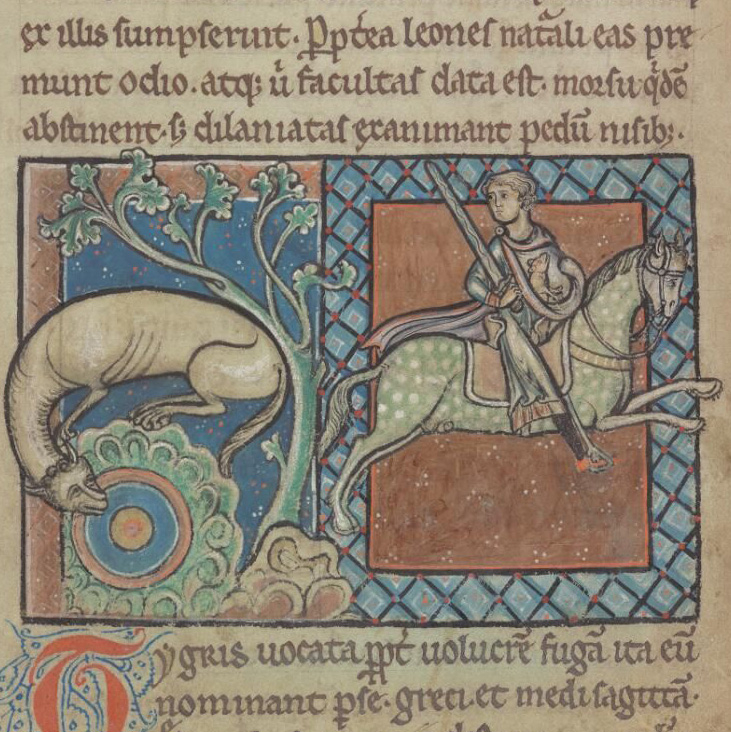 ex illis sumpserunt. Pp̄tea leones natāli eas pre
munt odio. atq; ū facultas data est. morsu q̇dē
abstinent. s; dilaniatas exanimant pedū nisib;.
Tygris uocata ꝓpt̄ uolucrē fugā ita eū
nominant ꝑse. greci. et medi sagittā.